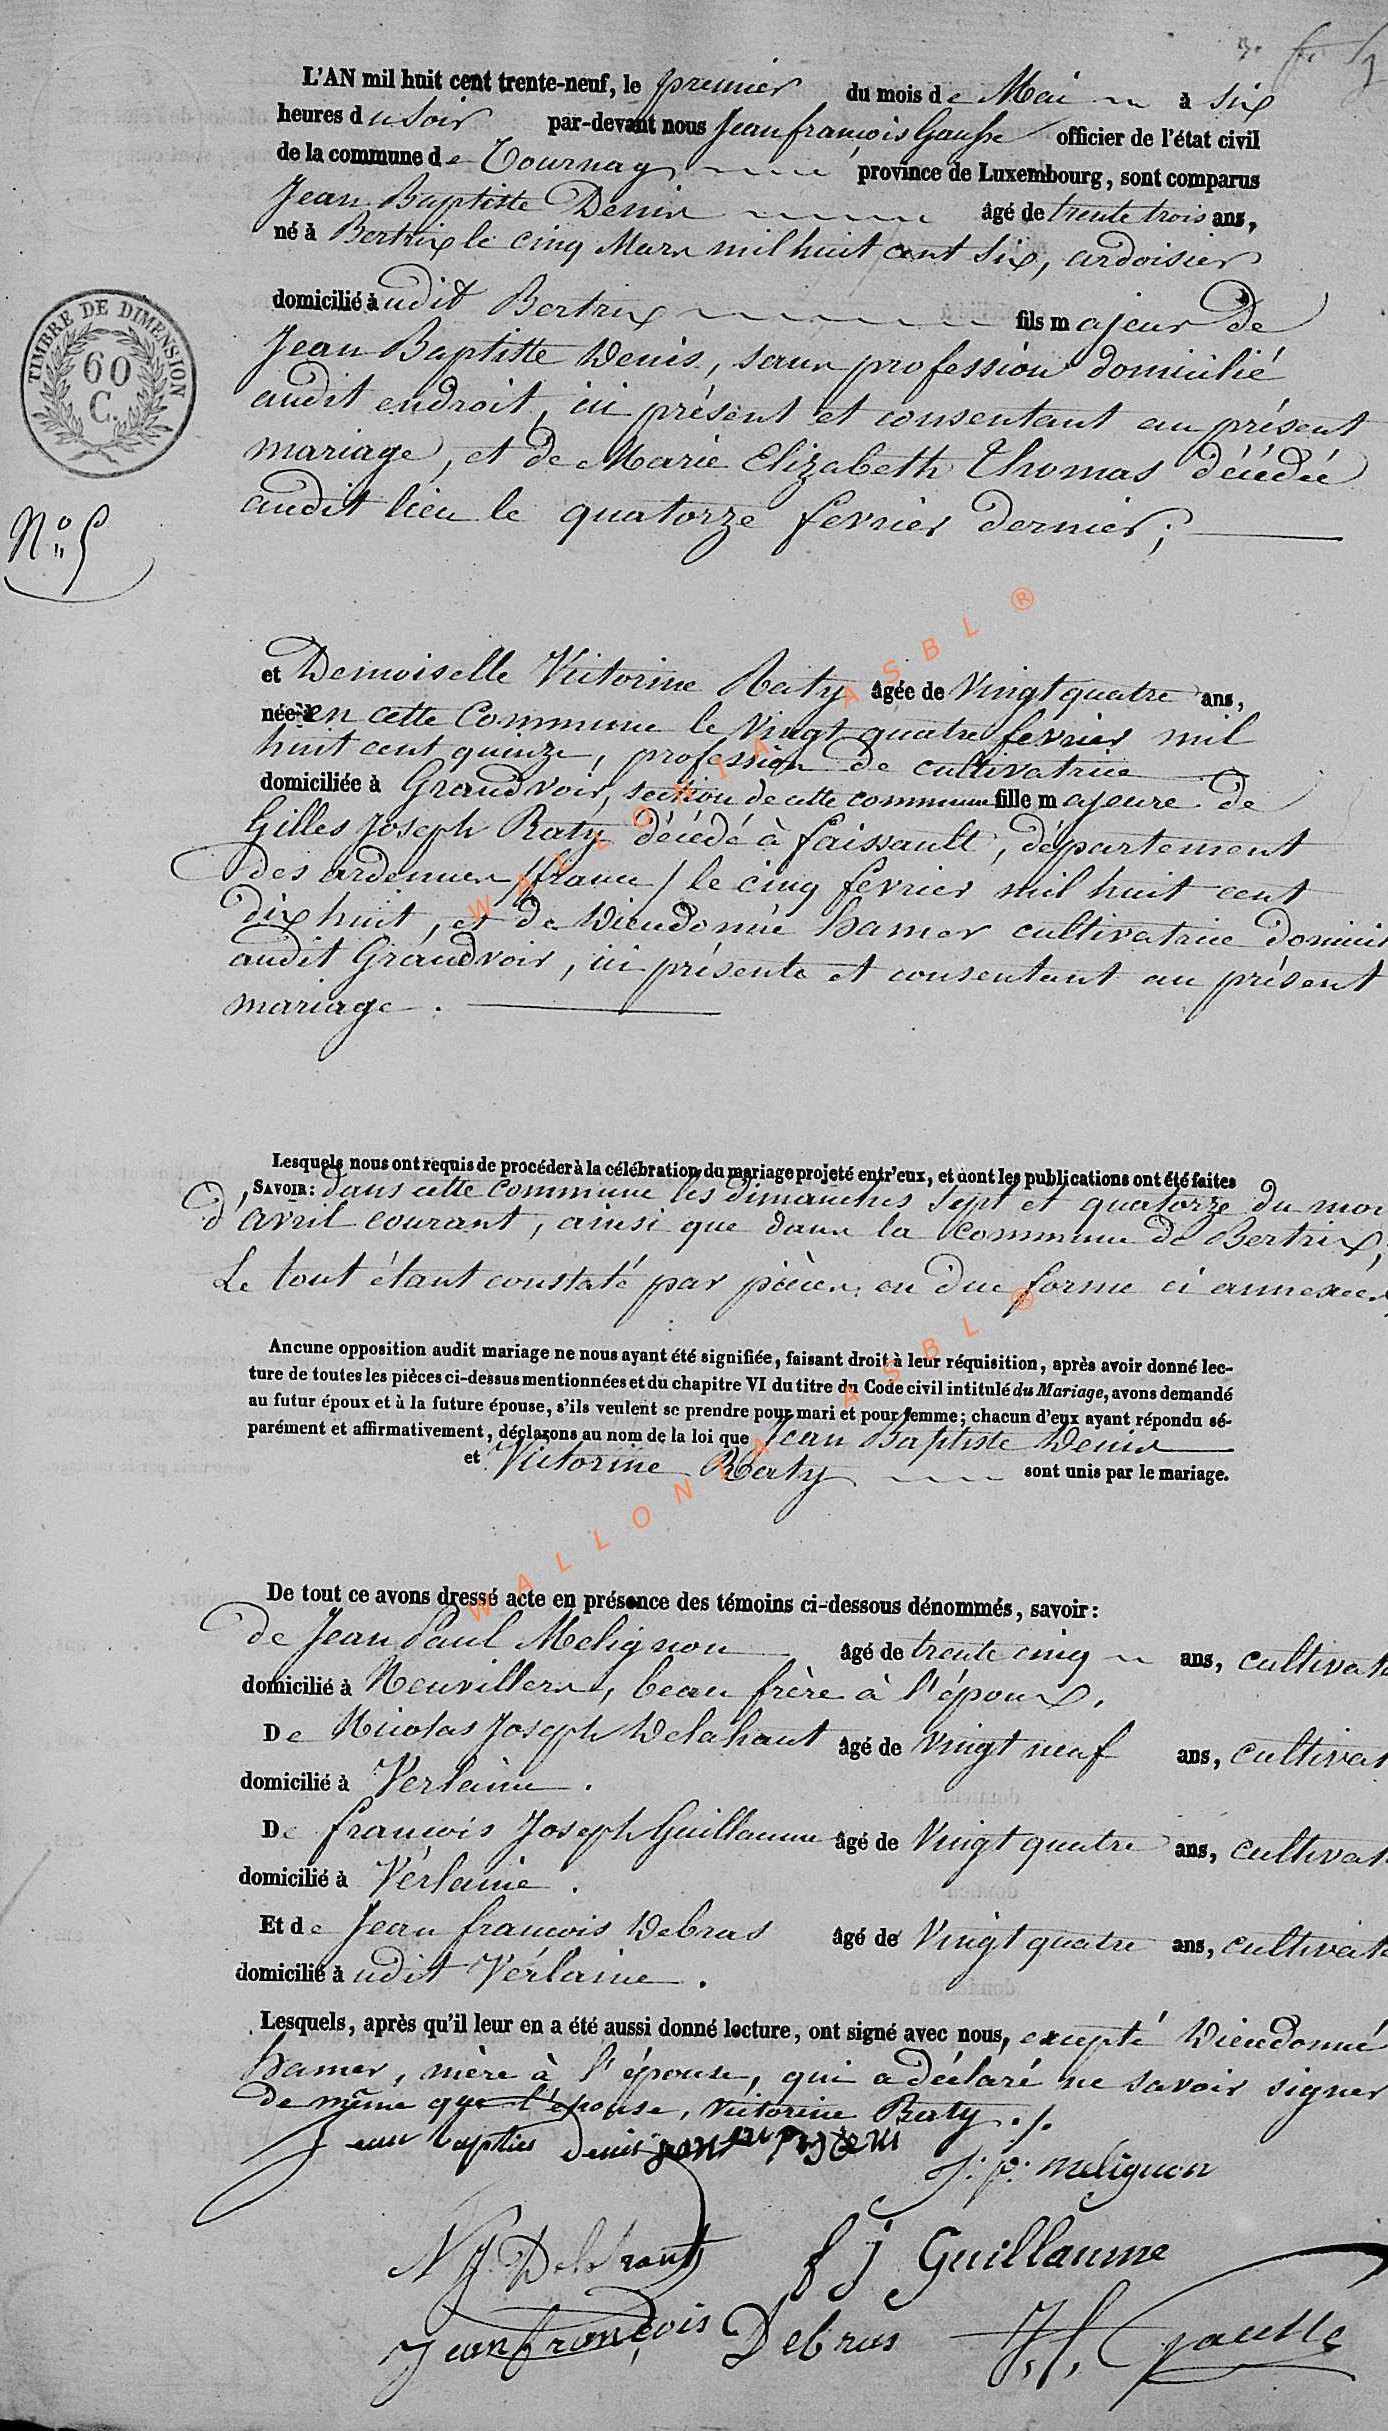 L'AN mil huit cent trente-neuf, le premier du mois de Mai à six
heures du soir par-devant nous Jean françois Gausse officier de l'état civil
de la commune de Tournay province de Luxembourg, sont comparus
Jean Baptiste Denis âgé de trente trois ans,
né à Bertrix le cinq Mars mil huit cent six, ardoisier
domicilié audit Bertrix fils majeur de
Jean Baptiste Denis, sans profession domicilié
audit endroit, ici présent et consentant au présent
mariage, et de Marie Elizabeth Thomas décédée
audit lieu le quatorze fevrier dernier;
TIMBRE DE DIMENSION
60
C.
No 5
et Demoiselle Victorine Raty âgée de Vingt quatre ans,
née à en cette Commune le Vingt quatre fevrier mil
huit cent quinze, profession de cultivatrice
domiciliée à Grandvoir, section de cette commune fille majeure de
Gilles Joseph Raty décédé à faissault, département
des ardennes /france/ le cinq fevrier mil huit cent
dix huit, et de Dieudonnée hamer cultivatrice domicil
audit Grandvoir, ici présente et consentant au présent
mariage.
Lesquels nous ont requis de procéder à la célébration du mariage projeté entr'eux, et dont les publications ont été faites
SAVOIR: dans cette commune les dimanches sept et quatorze du moi
d'avril courant, ainsi que dans la commune de Bertrix,
Le tout étant constaté par pièces en due forme ci annexées
Aucune opposition audit mariage ne nous ayant été signifiée, faisant droit à leur réquisition, après avoir donné lec-
ture de toutes les pièces ci-dessus mentionnées et du chapitre VI du titre du Code civil intitulé du Mariage, avons demandé
au futur époux et à la future épouse, s'ils veulent se prendre pour mari et pour femme; chacun d'eux ayant répondu sé-
parément et affirmativement, déclarons au nom de la loi que Jean Baptiste Denis
et Victorine Raty sont unis par le mariage.
De tout ce avons dressé acte en présence des témoins ci-dessous dénommés, savoir:
de Jean Paul Melignon âgé de trente cinq ans, cultivat
domicilié à Neuvillers, beau frère à l'époux.
De Nicolas Joseph Delahaut âgé de Vingt neuf ans, cultivat
domicilié à Verlaine.
De françois Joseph Guillaume âgé de Vingt quatre ans, cultivat
domicilié à Verlaine.
Et de Jean francois Debras âgé de Vingt quatre ans, cultivat
domicilié audit Verlaine.
Lesquels, après qu'il leur en a été aussi donné lecture, ont signé avec nous, excepté Dieudonnée
hamer, mère à l'épouse, qui a déclaré ne savoir signer
de même que l'épouse, victorine Raty ./.
Jean baptise Denis
J: p: melignon
N J Delahaut f j Guillaume
Jean françois Debras J. f. Gausse
WALLONIA ASBL ®
WALLONIA ASBL ®